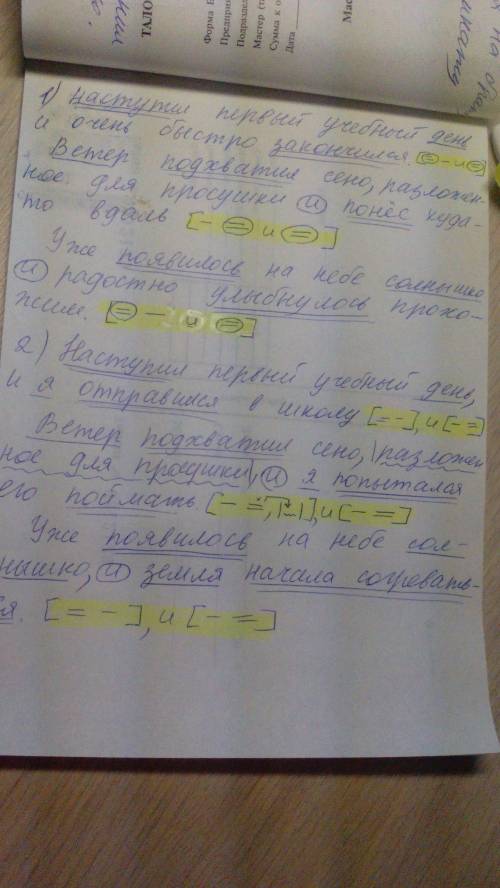 ТАЛО
Форма
Предпри
Подраздел
Мастер (
Сумма к о
Дата
Мас
1) Наступил первый учебный день
и очень быстро закончился. [= – и =]
Ветер подхватил сено, разложен-
ное для просушки и понёс куда-
то вдаль [- = и =]
Уже появилось на небе солнышко
и радостно улыбнулось прохо-
жим. [= – и =]
2) Наступил первый учебный день,
и я отправился в школу [= -], и [- =]
Ветер подхватил сено, |разложен
ное для просушки|, и я попытался
его поймать. [- =, |~|], и [- =]
Уже появилось на небе сол-
нышко, и земля начала согревать-
ся. [= -], и [- =]